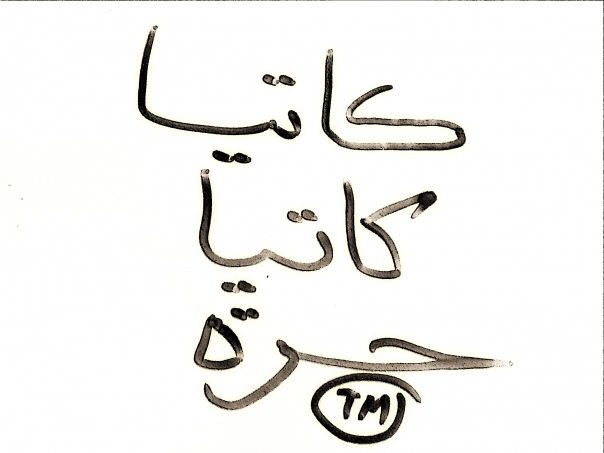 كاتيا
كاتيا
حرة
TM